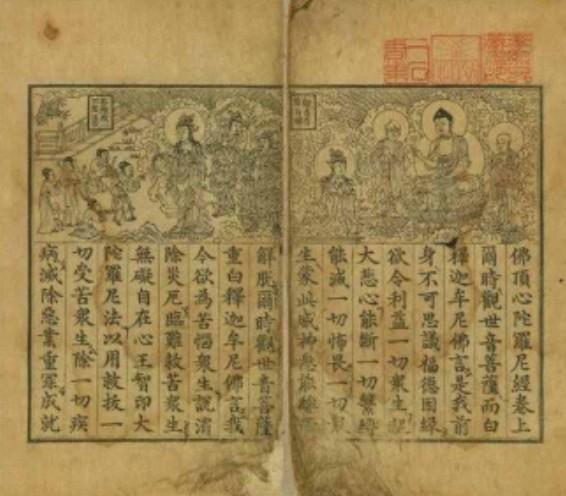 佛頂心陀羅尼經卷上
爾時觀世音菩薩而白
釋迦牟尼佛言是我前
身不可思議福德因緣
欲令利益一切衆生起
大悲心能斷一切繫縛
能滅一切怖畏一切衆
生蒙此威神悉能離
解脫爾時觀世音菩薩
重白釋迦牟尼佛言我
今欲為苦惱衆生說消
除災厄臨難救苦衆生
無礙自在心王智印大
陀羅尼法以用救拔一
切受苦衆生除一切疾
病滅除惡業重罪成就